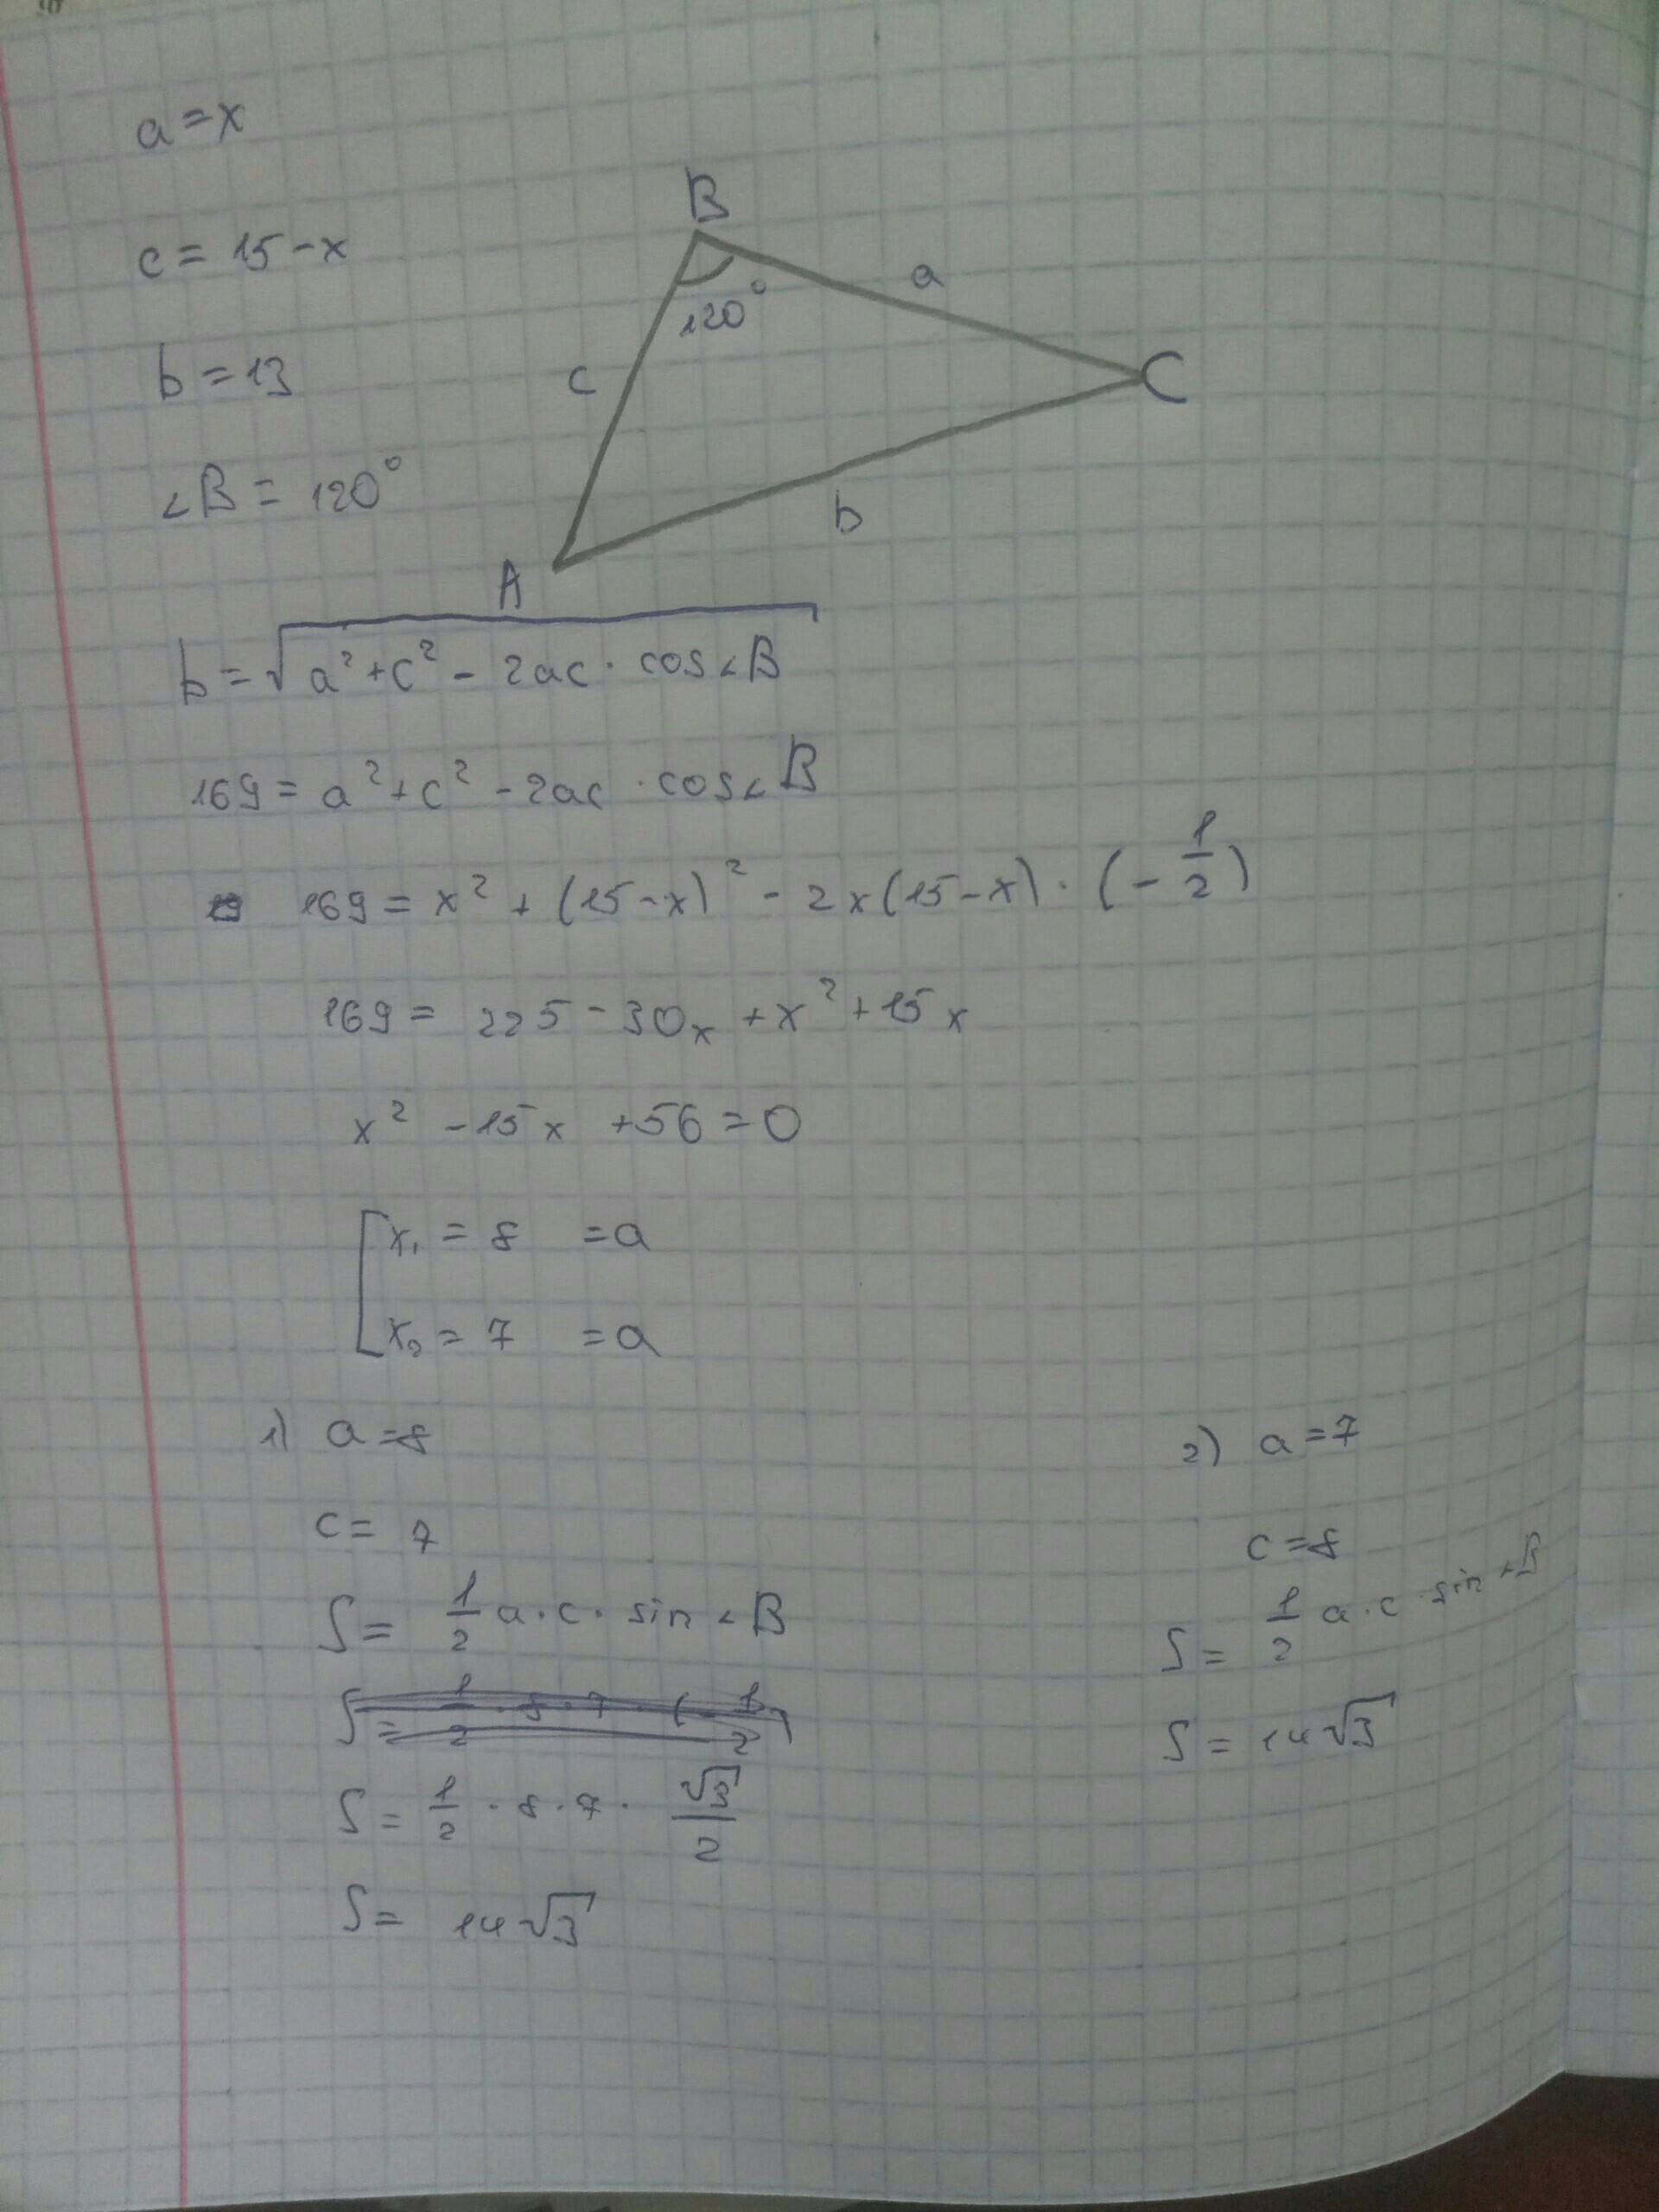 a = x
c = 15 - x
b = 13
∠B = 120°
B
120°
a
c
C
b
A
b = √(a² + c² - 2ac · cos∠B)
169 = a² + c² - 2ac · cos∠B
169 = x² + (15 - x)² - 2x(15 - x) · (-1/2)
169 = 225 - 30x + x² + 15x
x² - 15x + 56 = 0
[x₁ = 8 = a
x₂ = 7 = a
1) a = 8
c = 7
S = 1/2 a · c · sin∠B
S = 1/2 · 8 · 7 · (-1/2)
S = 1/2 · 8 · 7 · √3/2
S = 14√3
2) a = 7
c = 8
S = 1/2 a · c · sin∠B
S = 14√3